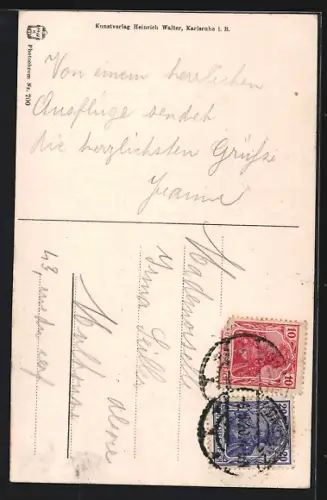 Kunstverlag Heinrich Walter, Karlsruhe i. B.
Photochrom Nr. 700
Von einem herrlichen
Ausfluge sendet
die herzlichsten Grüsse
Jeanne
Mademoiselle
Irma
Mulhouse
Alsace
43, rue du
10 10
20 20